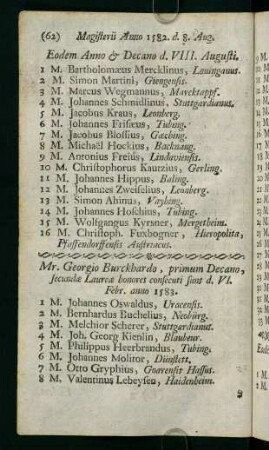 (62) Magisterii Anno 1582. d. 8. Aug.
Eodem Anno & Decano d. VIII. Augusti.
1 M. Bartholomæus Mercklinus, Lauinganus.
2 M. Simon Martini, Giengensis.
3 M. Marcus Wegmannus, Marcktapff.
4 M. Johannes Schmidlinus, Stuttgardianus.
5 M. Jacobus Kraus, Leonberg.
6 M. Johannes Frisæus, Tubing.
7 M. Jacobus Blossius, Gæching.
8 M. Michaël Hockius, Backnang.
9 M. Antonius Freius, Lindaviensis.
10 M. Christophorus Kaurzius, Gerling.
11 M. Johannes Hippus, Baling.
12 M. Johannes Zweifelius, Leonberg.
13 M. Simon Ahinus, Vayhing.
14 M. Johannes Hofchius, Tubing.
15 M. Wolfgangus Kyrsner, Mergetheim.
16 M. Christoph. Fuxbogner, Hieropolita,
Pfaffendorffensis Austriacus.
Mr. Georgio Burckhardo, primum Decano,
secundæ Laureæ honores consecuti sunt d. VI.
Febr. anno 1583.
1 M. Johannes Oswaldus, Uracensis.
2 M. Bernhardus Buchelius, Neobürg.
3 M. Melchior Scherer, Stuttgardianus.
4 M. Joh. Georg Kienlin, Blaubeur.
5 M. Philippus Heerbrandus, Tubing.
6 M. Johannes Molitor, Dünstett.
7 M. Otto Gryphius, Goarensis Hassus.
8 M. Valentinus Lebeysen, Haidenheim.